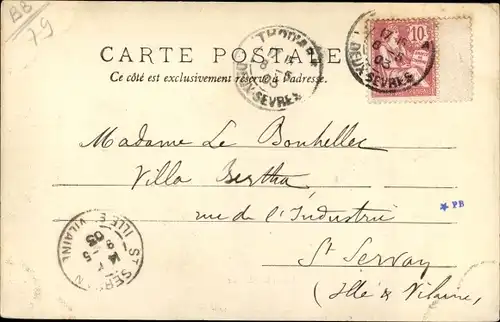 BB
79
CARTE POSTALE
Ce côté est exclusivement réservé à l'adresse.
THOUARS
DEUX-SÈVRES
10
DEUX-SÈVRES
Madame Le Bonhellec
Villa Bertha
rue de l'Industrie
St Servan
(Ille & Vilaine)
ST SERVAN
ILLE & VILAINE
* PB